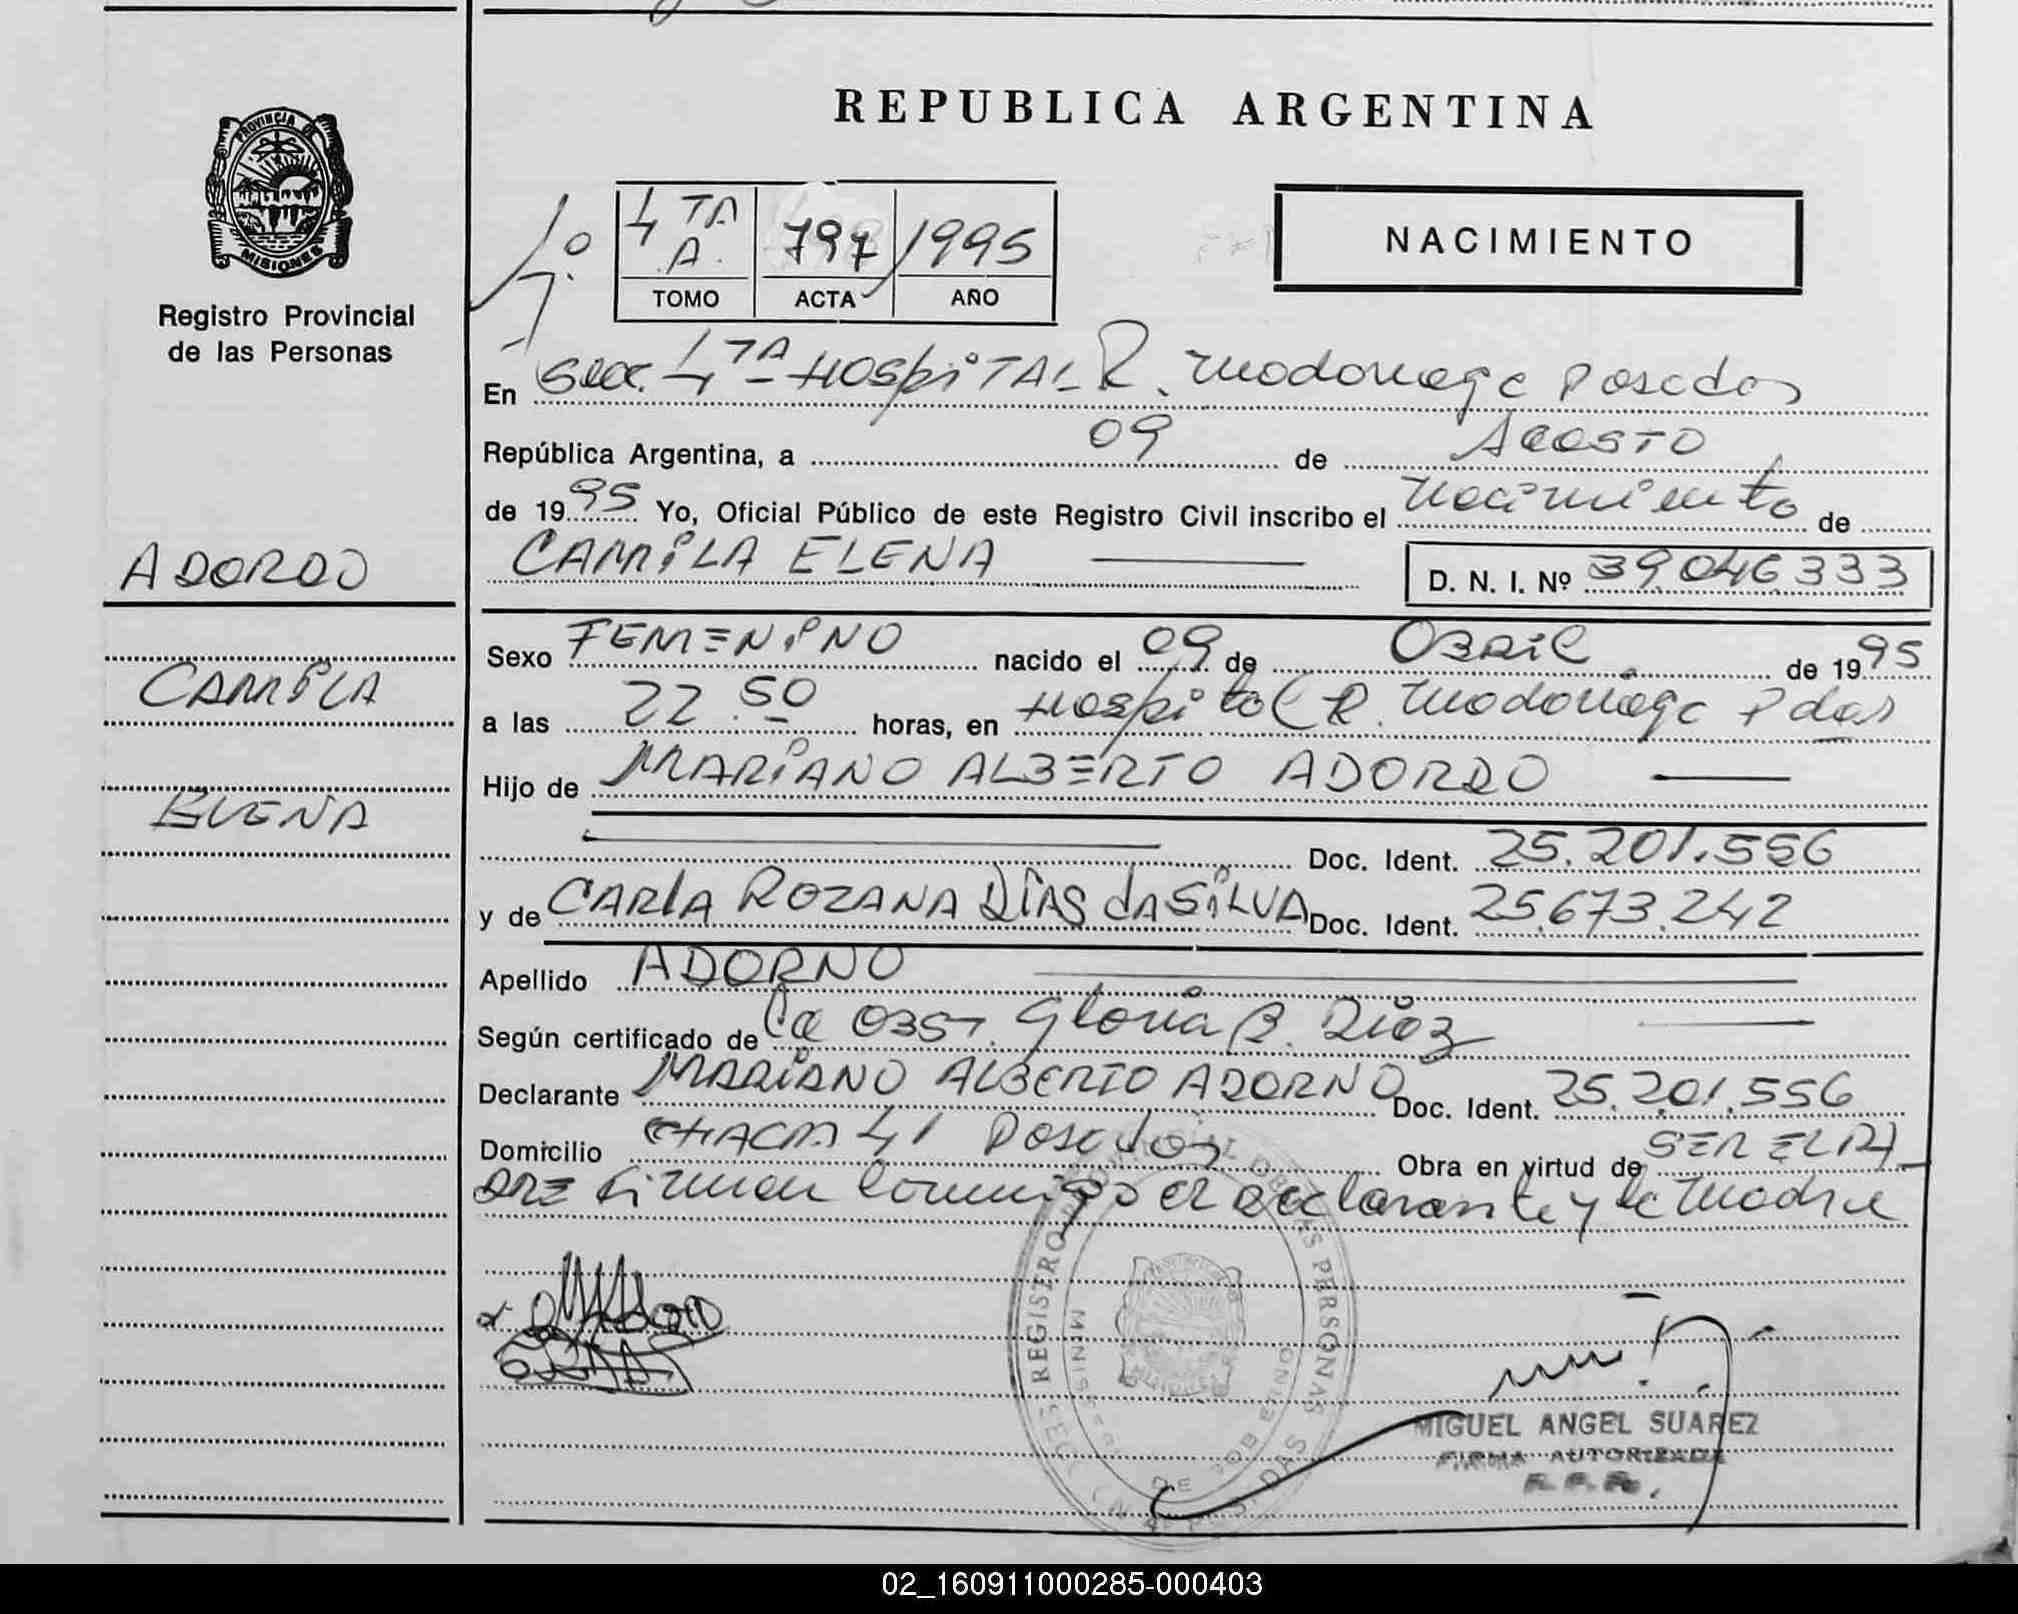 REPUBLICA ARGENTINA
PROVINCIA DE
MISIONES
Registro Provincial
de las Personas
4TA
A.
797
1995
TOMO
ACTA
AÑO
NACIMIENTO
En Secc. 4TA HOSpiTAL R. Madariaga Posadas
República Argentina, a 09 de AGOSTO
de 1995 Yo, Oficial Público de este Registro Civil inscribo el nacimiento de
CAMILA ELENA
D. N. I. Nº 39.046.333
ADORDO
CAMILA
ELENA
Sexo FEMENINO nacido el 09 de ABRIL de 1995
a las 22.50 horas, en Hospital R. Madariaga Pdas
Hijo de MARIANO ALBERTO ADORDO
Doc. Ident. 25.201.556
y de CARLA ROZANA DIAS dA SILVA Doc. Ident. 25.673.242
Apellido ADORNO
Según certificado de La OBST. Gloria B. Diaz
Declarante MARIANO ALBERTO ADORNO Doc. Ident. 25.201.556
Domicilio CHACRA 41 Posadas Obra en virtud de SER EL PA
DRE firman conmigo el declarante y la madre
MIGUEL ANGEL SUAREZ
FIRMA AUTORIZADA
R. P. P.
02_160911000285-000403